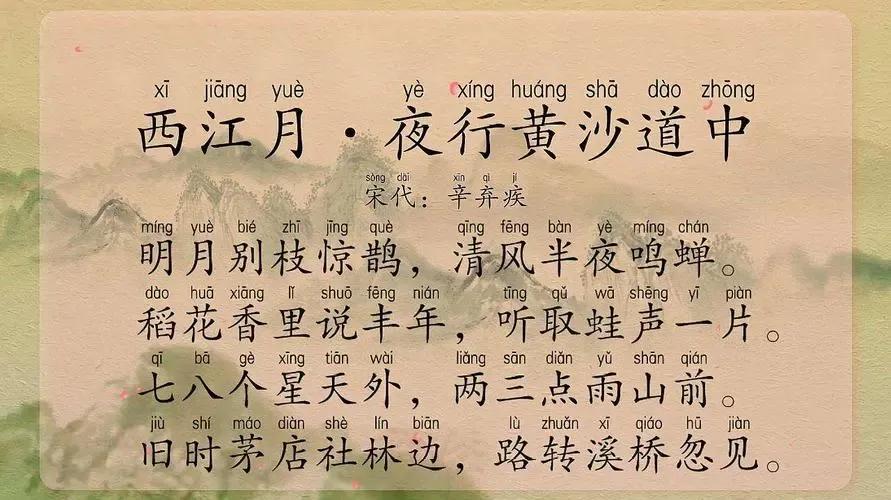 xī jiāng yuè yè xíng huáng shā dào zhōng
西江月·夜行黄沙道中
sòng dài xīn qì jí
宋代：辛弃疾
míng yuè bié zhī jīng què qīng fēng bàn yè míng chán
明月别枝惊鹊，清风半夜鸣蝉。
dào huā xiāng lǐ shuō fēng nián tīng qǔ wā shēng yī piàn
稻花香里说丰年，听取蛙声一片。
qī bā gè xīng tiān wài liǎng sān diǎn yǔ shān qián
七八个星天外，两三点雨山前。
jiù shí máo diàn shè lín biān lù zhuǎn xī qiáo hū jiàn
旧时茅店社林边，路转溪桥忽见。